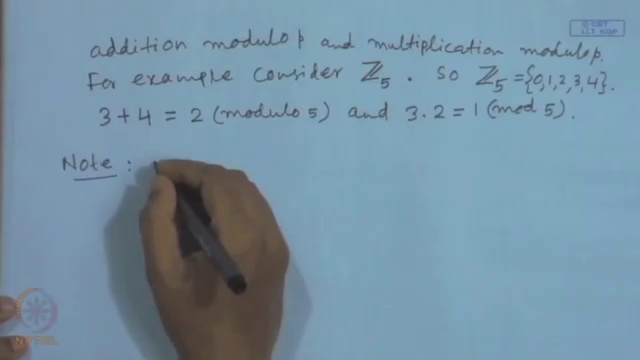 addition modulo p and multiplication modulo p.
For example consider ℤ₅ . So ℤ₅ = {0,1,2,3,4}.
3 + 4 = 2 (modulo 5) and 3 . 2 = 1 (mod 5).
Note :
NPTEL